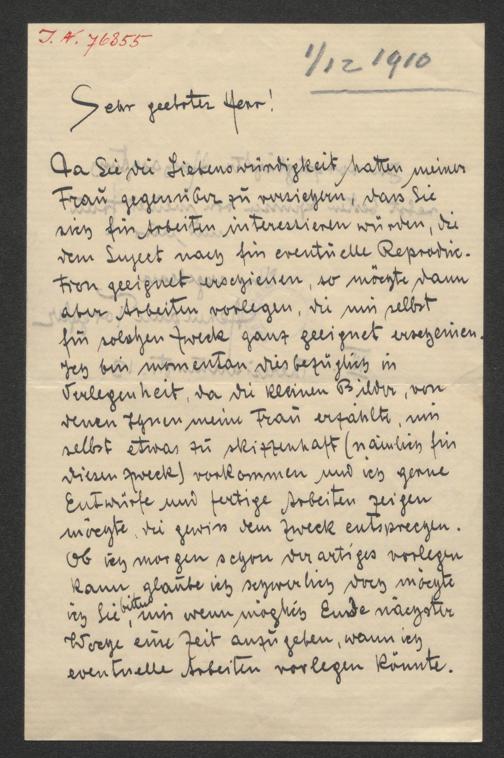 J. N. 76855
1/12 1910
Sehr geehrter Herr!
Da Sie die Liebenswürdigkeit hatten meiner
Frau gegenüber zu versichern, dass Sie
sich für Arbeiten interessieren würden, die
dem Sujet nach für eventuelle Reproduc-
tion geeignet erschienen, so möchte dann
aber Arbeiten vorlegen, die mir selbst
für solchen Zweck ganz geeignet erscheinen.
Ich bin momentan diesbezüglich in
Verlegenheit, da die kleinen Bilder, von
denen Ihnen meine Frau erzählte, mir
selbst etwas zu skizzenhaft (nämlich für
diesen Zweck) vorkommen und ich gerne
Entwürfe und fertige Arbeiten zeigen
möchte, die gewiss dem Zweck entsprechen.
Ob ich morgen schon derartiges vorlegen
kann, glaube ich schwerlich doch möchte
ich Sie bitten, mir wenn möglich Ende nächster
Woche eine Zeit anzugeben, wann ich
eventuelle Arbeiten vorlegen könnte.